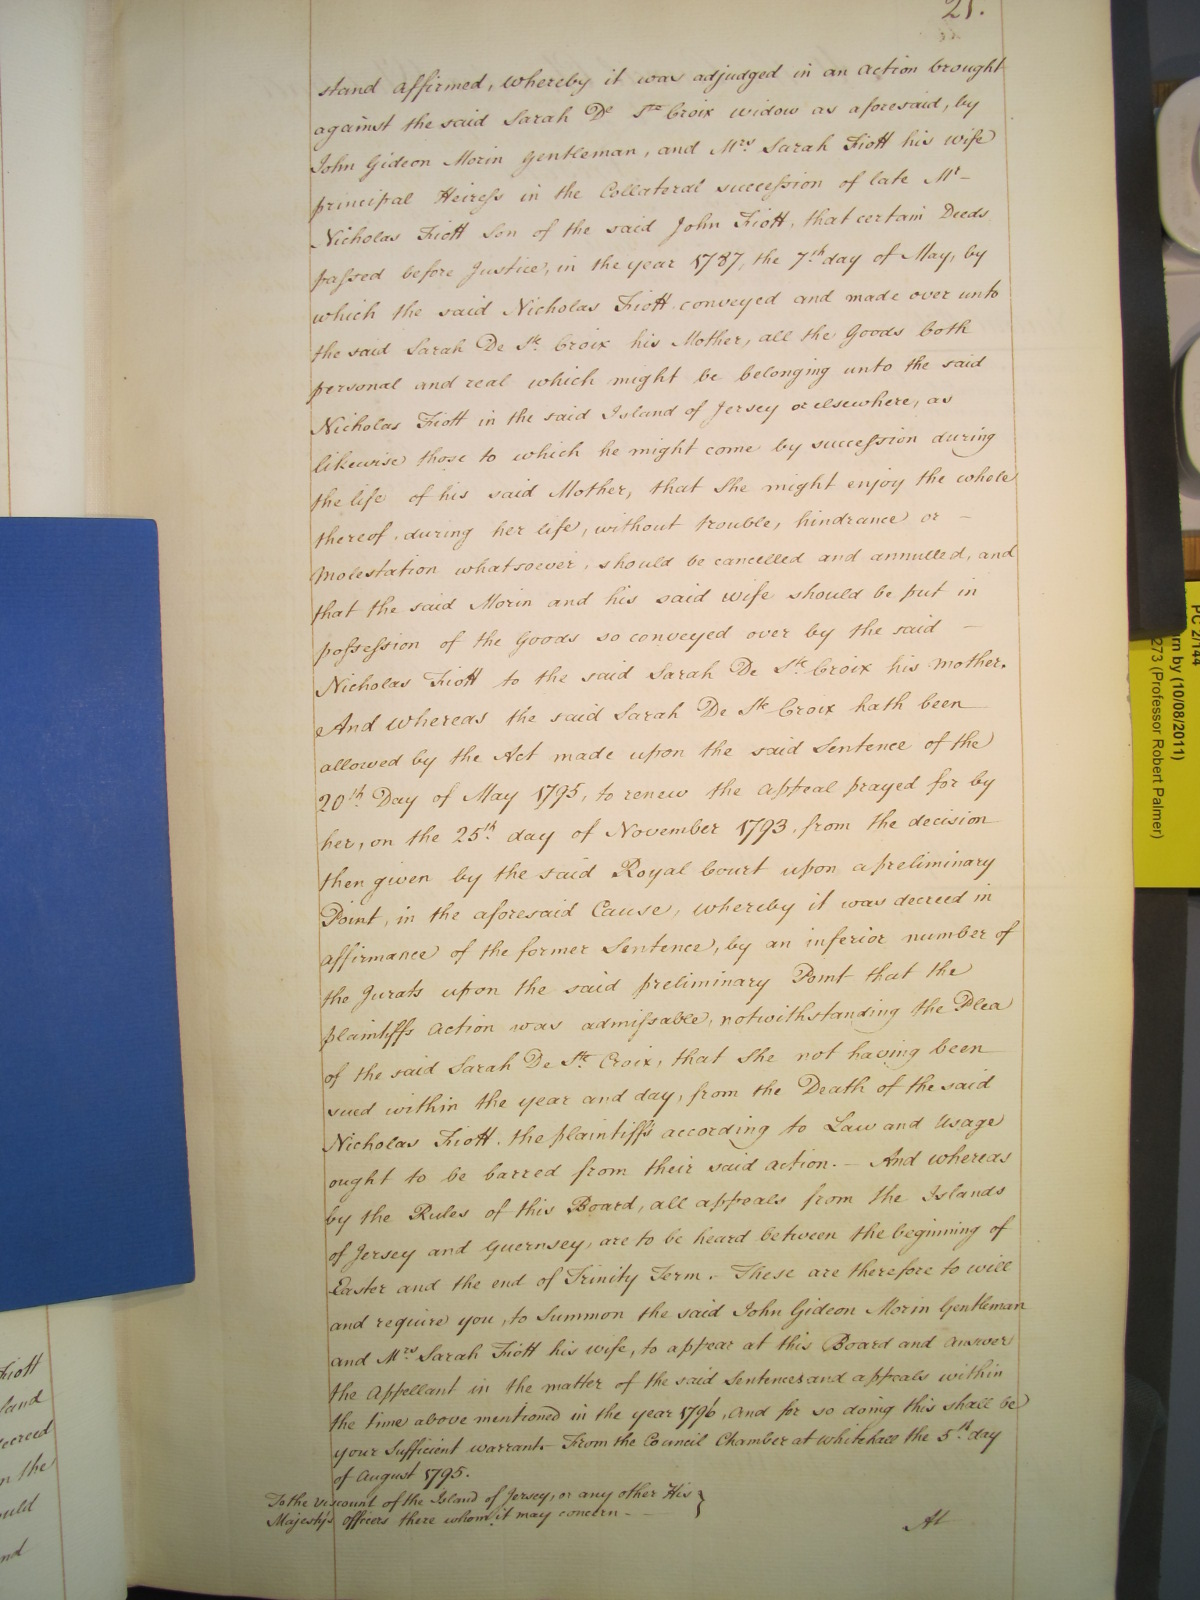 21.
stand affirmed, whereby it was adjudged in an action brought
against the said Sarah De Ste Croix widow as aforesaid, by
John Gideon Morin Gentleman, and Mrs Sarah Fiott his wife
principal Heiress in the Collateral succession of late Mr -
Nicholas Fiott Son of the said John Fiott, that certain Deeds
passed before Justice, in the year 1787, the 7th day of May, by
which the said Nicholas Fiott conveyed and made over unto
the said Sarah De Ste Croix his Mother, all the Goods both
personal and real which might be belonging unto the said
Nicholas Fiott in the said Island of Jersey or elsewhere, as
likewise those to which he might come by succession during
the life of his said Mother, that She might enjoy the whole
thereof, during her life, without trouble, hindrance or -
Molestation whatsoever, should be cancelled and annulled, and
that the said Morin and his said wife should be put in
possession of the Goods so conveyed over by the said -
Nicholas Fiott to the said Sarah De Ste Croix his mother.
And whereas the said Sarah De Ste Croix hath been
allowed by the Act made upon the said Sentence of the
20th Day of May 1795, to renew the appeal prayed for by
her, on the 25th day of November 1793, from the decision
then given by the said Royal Court upon a preliminary
Point, in the aforesaid Cause, whereby it was decreed in
affirmance of the former Sentence, by an inferior number of
the Jurats upon the said preliminary Point that the
plaintiffs action was admissable, notwithstanding the Plea
of the said Sarah De Ste Croix, that She not having been
sued within the year and day, from the Death of the said
Nicholas Fiott, the plaintiffs according to Law and Usage
ought to be barred from their said action. - And whereas
by the Rules of this Board, all appeals from the Islands
of Jersey and Guernsey, are to be heard between the beginning of
Easter and the end of Trinity Term. - These are therefore to will
and require you, to Summon the said John Gideon Morin Gentleman
and Mrs Sarah Fiott his wife, to appear at this Board and answer
the Appellant in the matter of the said Sentences and appeals within
the time above mentioned in the year 1796, and for so doing this shall be
your Sufficient warrant - From the Council Chamber at Whitehall the 5th day
of August 1795.
To the Viscount of the Island of Jersey, or any other His
Majesty's officers there whom it may concern -
At
Fiott
land
decreed
n the
ould
nd
PC 2/144
rn by (10/08/2011)
273 (Professor Robert Palmer)